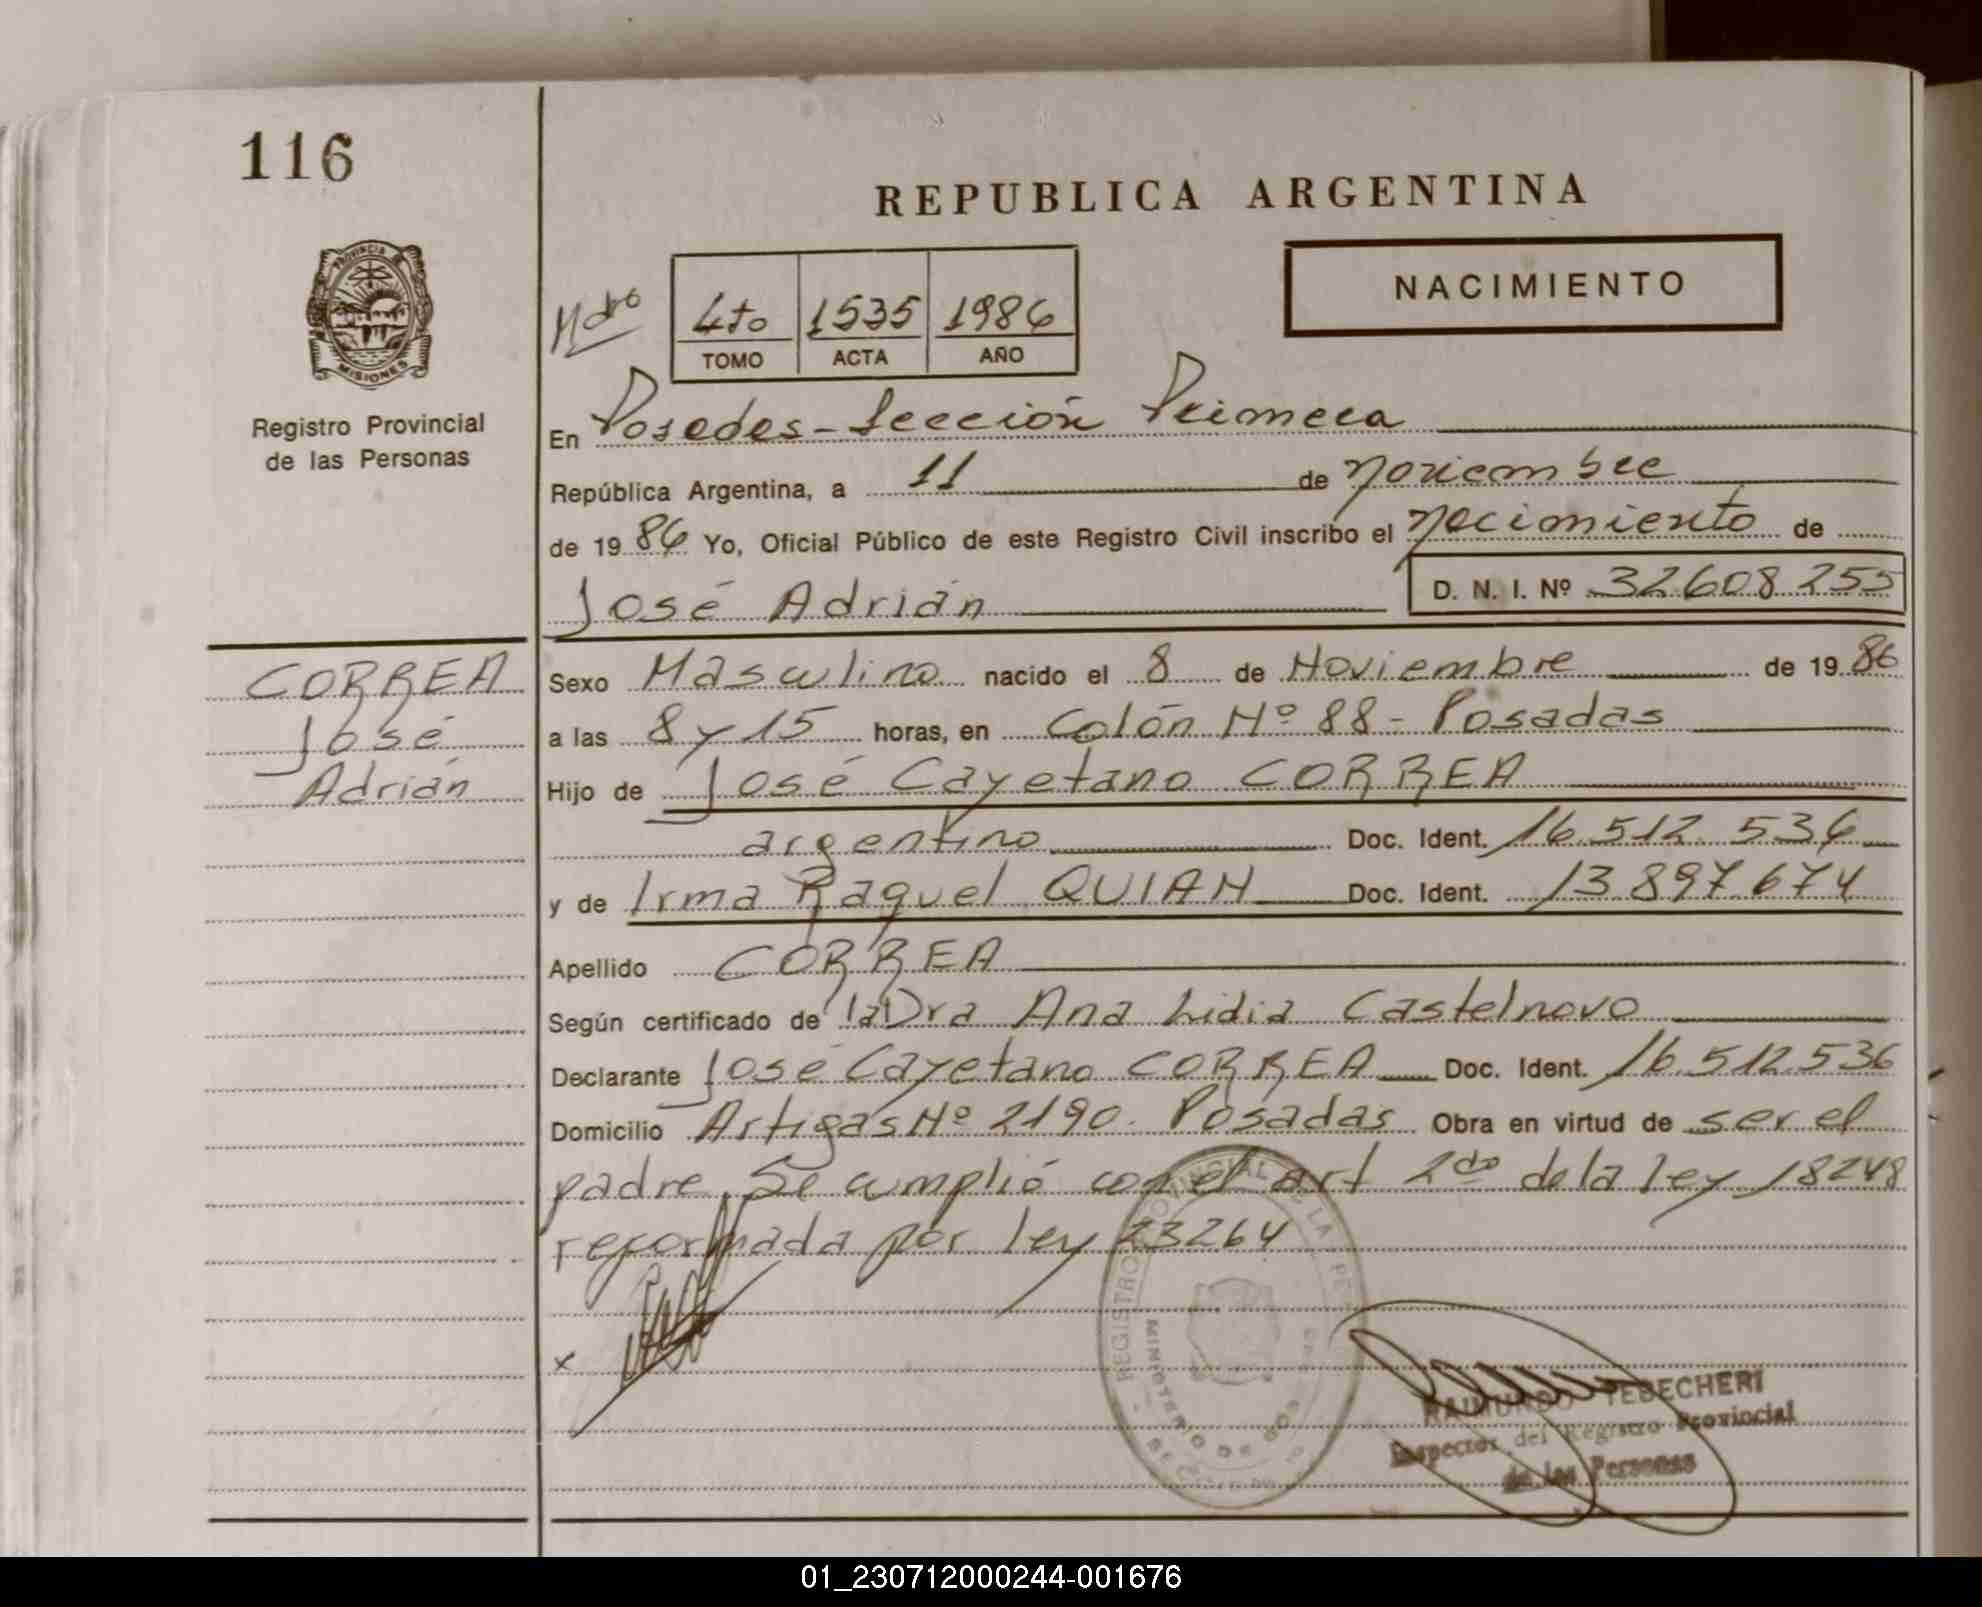 116
REPUBLICA ARGENTINA
PROVINCIA DE
MISIONES
Registro Provincial
de las Personas
4to 1535 1986
TOMO ACTA AÑO
NACIMIENTO
En Posadas - Sección Primera
República Argentina, a 11 de noviembre
de 1986 Yo, Oficial Público de este Registro Civil inscribo el nacimiento de
José Adrián D. N. I. Nº 32608255
CORREA
José
Adrián
Sexo Masculino nacido el 8 de Noviembre de 1986
a las 8 y 15 horas, en Colón Nº 88 - Posadas
Hijo de José Cayetano CORREA
argentino Doc. Ident. 16.512.536
y de Irma Raquel QUIAN Doc. Ident. 13.897.674
Apellido CORREA
Según certificado de la Dra Ana Lidia Castelnovo
Declarante José Cayetano CORREA Doc. Ident. 16.512.536
Domicilio Artigas Nº 2190. Posadas Obra en virtud de ser el
padre. Se cumplió con el art 2do de la ley 18248
reformada por ley 23264
x
RAIMUNDO TEBECHERI
Inspector del Registro Provincial
de las Personas
01_230712000244-001676